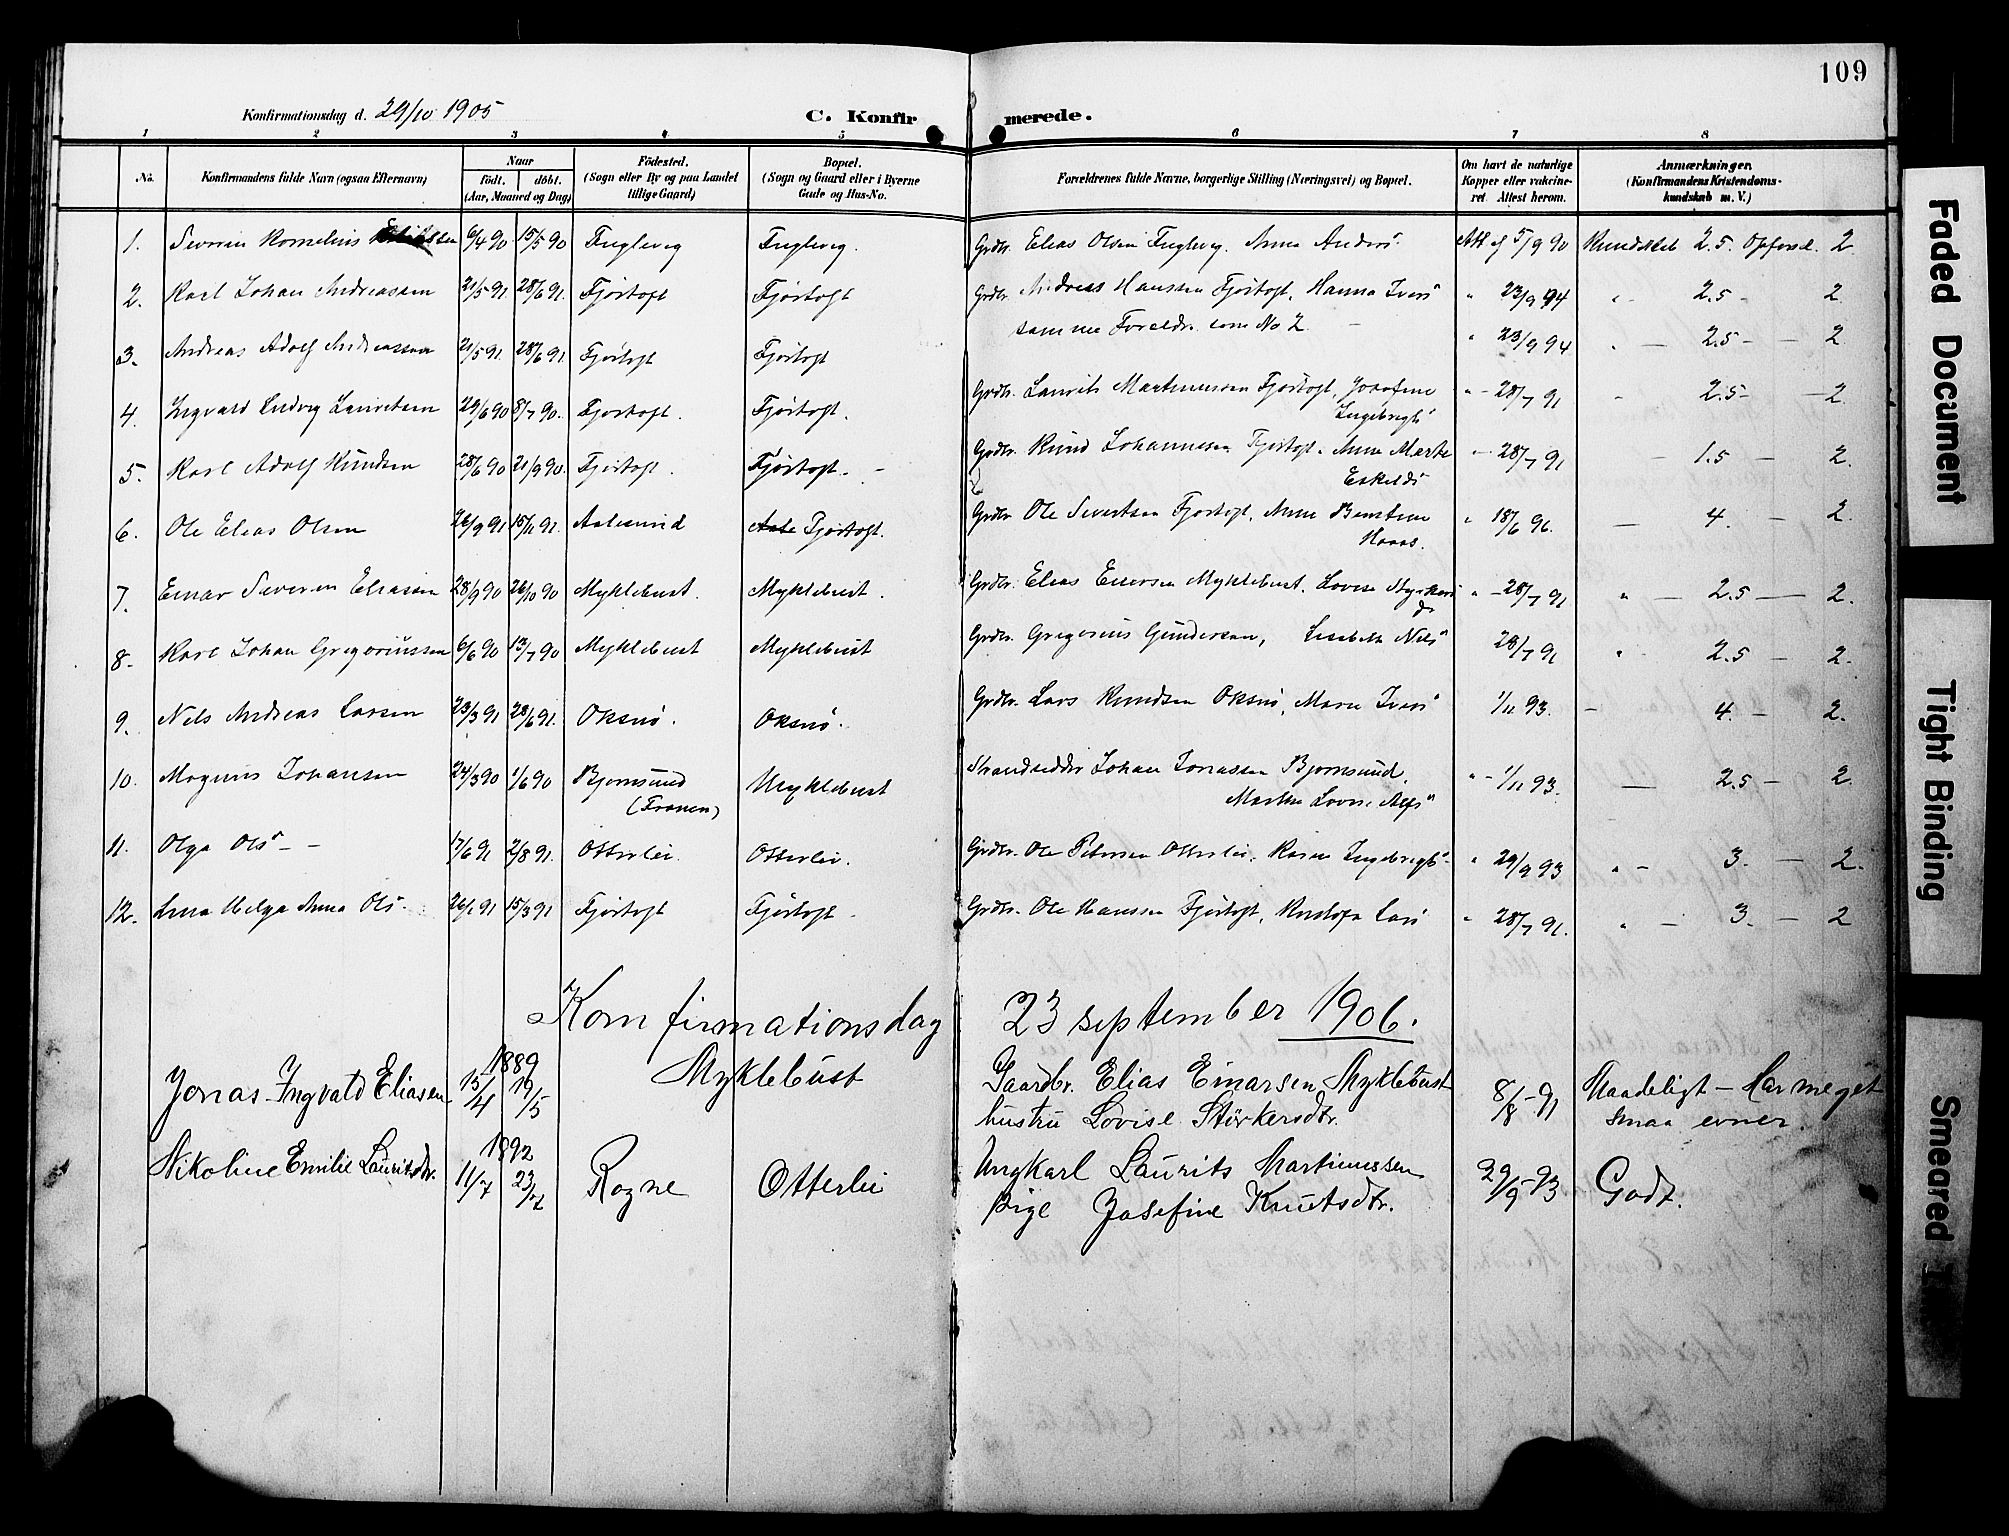 109
Konfirmationsdag d. 29/10 1905 C. Konfirmerede.
1 2 3 4 5 6 7 8
No. Konfirmandens fulde Navn (ogsaa Efternavn) Naar født. døbt. (Aar, Maaned og Dag) Födested. (Sogn eller By og paa Landet tillige Gaard) Bopæl. (Sogn og Gaard eller i Byerne Gade og Hus-No. Forældrenes fulde Navne, borgerlige Stilling (Næringsvei) og Bopæl. Om havt de naturlige Kopper eller vakcineret Attest herom. Anmærkninger. (Konfirmandens Kristendomskundskab m. V.)
1. Severin Kornelius 6/4 90 15/5 90 Fuglevig Fuglevig. Grdbr. Elias Olsen Fuglevig. Anna Anders" Att af 5/9 90 Kundskab 2.5. Opførsel. 2
2. Karl Johan Andreassen 21/5 91 28/6 91. Fjørtoft Fjørtoft Grdbr. Andreas Hanssen Fjørtoft, Hanna Ivers" " 23/9 94 " 2.5 - 2.
3. Andreas Adolf Andreassen 21/5 91. 28/6 91. Fjørtoft Fjørtoft samme Foreldre som No 2. - " 23/9 94 " - 2.5 - - 2
4. Ingvald Ludvig Lauritsen 29/6 90 8/7 90. Fjørtoft. Fjørtoft. Grdbr. Laurits Martinussen Fjørtoft, Josefine Ingebrigts" " - 28/7 91 " 2.5 - - 2.
5. Karl Adolf Knudsen 28/6 90 21/9 90. Fjørtoft. Fjørtoft. - Grdbr. Knud Johannessen Fjørtoft. Anne Marta Eskelds" " - 28/7 91 - 1.5 - 2.
6. Ole Elias Olsen 26/9 91 15/11 91. Aalesund Aale Fjørtoft. Grdbr. Ole Severtsen Fjørtoft, Anne Hans. " 18/6 96. - 4. - 2.
7. Einar Severin Eliassen 28/9 90 26/10 90 Myklebust. Myklebust. Grdbr. Elias Einersen Myklebust. Lovise " - 28/7 91 " - 2.5 - 2.
8. Karl Johan Gregoriussen 6/6 90 13/7 90 Myklebust Myklebust Grdbr. Gregorius Gundersen, Lisabeth Nils" 28/7 91 " 2.5 - 2.
9. Nils Andreas Larsen 23/3 91 28/6 91. Oksnø. Oksnø. Grdbr. Lars Knudsen Oksnø, Marie Ivers" 1/11 93. - 4. - 2.
10. Magnus Johansen 24/3 90 1/6 90 Bjørnsund (Frænen) Myklebust Strandsidder Johan Jonassen Bjørnsund. Martha Lovise Alfs" " - 1/11 93. - 2.5 - 2.
11. Olga Ols" - - 17/6 91 2/8 91. Otterlei. Otterlei. Grdbr. Ole Petersen Otterlei, Ingebrigts" " 29/9 93 " - 3. - 2.
12. Helga Anna Ols. 26/1 91 15/3 91 Fjørtoft Fjørtoft. Grdbr. Ole Hanssen Fjørtoft, Lars" " 28/7 91. " - 3. - 2
Komfirmationsdag 23 september 1906.
Jonas Ingvald Eliasen 1889 15/4 19/5 Myklebust Gaardbr. Elias Einarsen Myklebust hustru Lovise Størkersdtr. 8/8-91 Maadeligt - Har meget smaa evner.
Nikoline Emilie Lauritsdtr. 1892 11/7 23/7 Rogne Otterlei Ungkarl Laurits Martinussen pige Josefine Knutsdtr. 29/9-93 Godt.
Faded Document
Tight Binding
Smeared